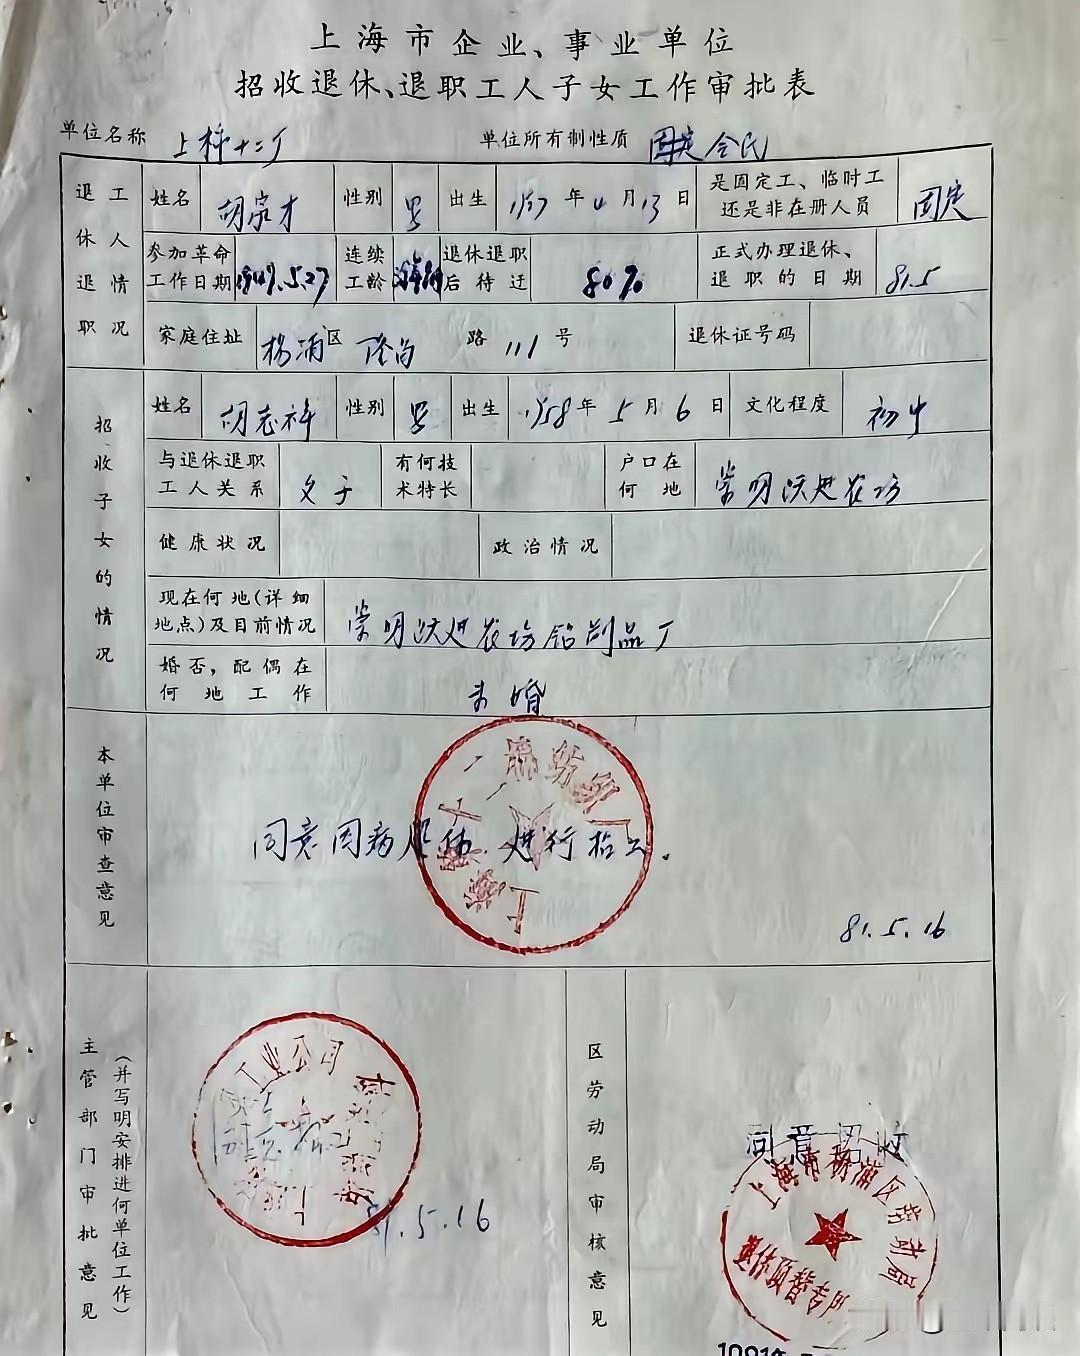 上海市企业、事业单位
招收退休、退职工人子女工作审批表
单位名称 上棉十二厂 单位所有制性质 固定全民
退休退职工人情况
姓名 胡家才 性别 男 出生 年 4月13日 是固定工、临时工还是非在册人员 固定
参加革命工作日期 1949.5.27 连续工龄 退休退职后待迂 80% 正式办理退休、退职的日期 81.5
家庭住址 杨浦区隆昌路111号 退休证号码
招收子女的情况
姓名 胡志祥 性别 男 出生 1958年5月6日 文化程度 初中
与退休退职工人关系 父子 有何技术特长 户口在何地 崇明跃进农场
健康状况 政治情况
现在何地(详细地点)及目前情况 崇明跃进农场铝制品厂
婚否，配偶在何地工作 未婚
本单位审查意见
同意因病退休.进行招工.
上海第十二棉纺织厂
81.5.16
主管部门审批意见
(并写明安排进何单位工作)
工业公司
81.5.16
区劳动局审核意见
同意招收
上海市杨浦区劳动局
退休顶替专用